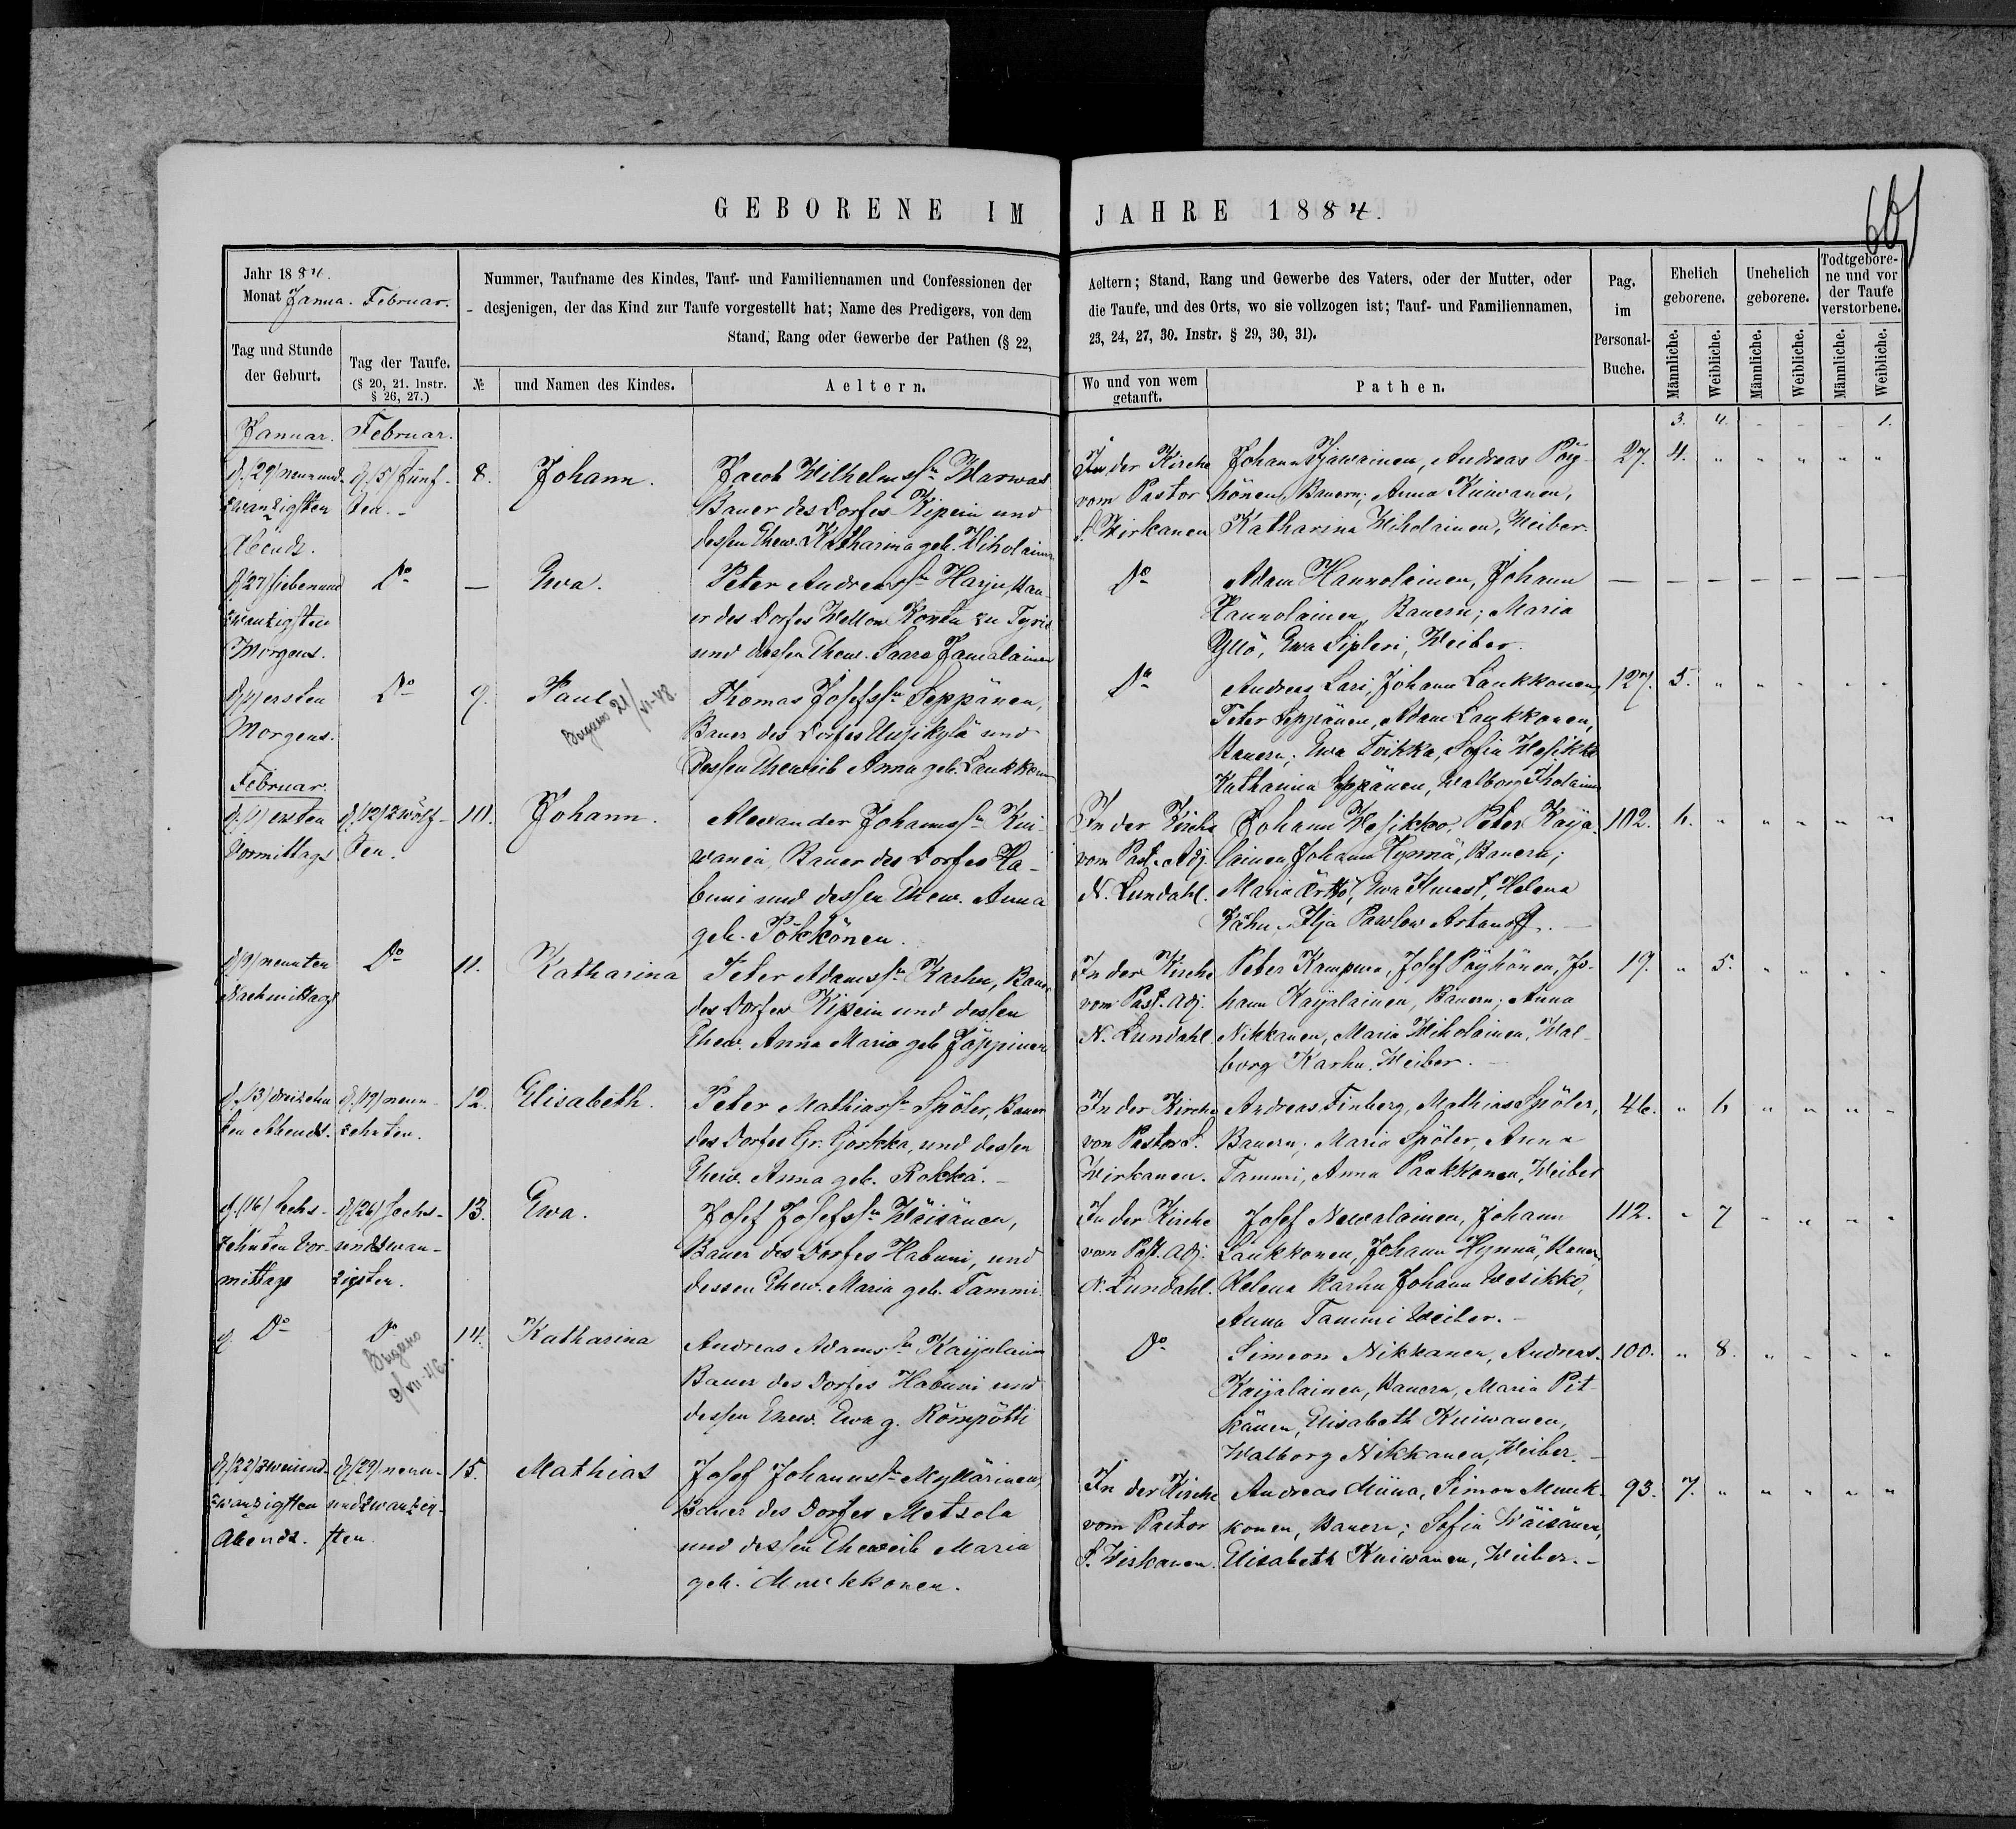 GEBORENE IM JAHRE 1884.
661
Jahr 1884.
Monat Janua. Februar.
Tag und Stunde
der Geburt.
Tag der Taufe.
(§ 20, 21. Instr.
§ 26, 27.)
Nummer, Taufname des Kindes, Tauf- und Familiennamen und Confessionen der
desjenigen, der das Kind zur Taufe vorgestellt hat; Name des Predigers, von dem
Stand, Rang oder Gewerbe der Pathen (§ 22,
№
und Namen des Kindes.
Aeltern.
Aeltern; Stand, Rang und Gewerbe des Vaters, oder der Mutter, oder
die Taufe, und des Orts, wo sie vollzogen ist; Tauf- und Familiennamen,
23, 24, 27, 30. Instr. § 29, 30, 31).
Wo und von wem
getauft.
Pathen.
Pag.
im
Personal-
Buche.
Ehelich
geborene.
Unehelich
geborene.
Todtgebore-
ne und vor
der Taufe
verstorbene.
Männliche.
Weibliche.
Männliche.
Weibliche.
Männliche.
Weibliche.
3. 4. - - - 1.
Januar.
Februar.
d. (29) neunund-
zwanzigsten
Abends.
d. (5) fünf-
ten.-
8.
Johann.
Jacob Wilhelmssn Marwas
Bauer des Dorfes Kipein und
dessen Ehew. Katharina geb. Wiholainen
In der Kirche
vom Pastor
S. Wirkanen
Johann Hjäwainen, Andreas Pöy-
hönen, Bauern; Anna Kuiwanen,
Katharina Wiholainen, Weiber.
27. 4. " " " " "
d (27) siebenund
zwanzigsten
Morgens.
Do
—
Ewa.
Peter Andreassn Harju, Bau-
er des Dorfes Wellon Kontu zu Tyris
und dessen Ehew. Saara Jamalainen
Do
Adam Hannolainen, Johann
Hannolainen, Bauern; Maria
Yllö, Ewa Sipleri, Weiber.
— — — — — — —
d (1) ersten
Morgens.
Do
9.
Paul
21/VI-48
Thomas Josefssn Seppänen,
Bauer des Dorfes Uusikylä und
dessen Eheweib Anna geb. Laukkonen
Do
Andreas Lari, Johann Laukkonen,
Peter Seppänen, Adam Laukkonen,
Bauern; Ewa Toikka, Sofia Wesikko
Katharina Seppänen, Walborg Iholainen
127. 5. " " " " "
Februar.
d. (1) ersten
Vormittags
d. (12) zwölf-
ten.
10.
Johann.
Alexander Johannssn Kui-
wanen, Bauer des Dorfes Ha-
buni und dessen Ehew. Anna
geb. Pökkönen.
In der Kirche
vom Past. Adj.
N. Lundahl.
Johann Wesikko, Peter Kaija-
lainen Johann Hynnä, Bauern;
Maria Örttö, Ewa Ihwast, Helena
Kähn, Ilja Pawlow Artanoff.—
102. 6. " " " " "
d (9) neunten
Nachmittags
Do
11.
Katharina
Peter Adamssn Karhu, Bauer
des Dorfes Kipein und dessen
Ehew. Anna Maria geb Jäppinen
In der Kirche
vom Past. Adj.
N. Lundahl
Peter Kampura, Josef Pöyhönen, Jo-
hann Kaijalainen, Bauern; Anna
Nikkanen, Maria Wiholainen, Wal-
borg Karhu, Weiber.—
19. " 5. " " " "
d. (13) dreizehn
ten Abends.
d. (19) neun-
zehnten.
12.
Elisabeth.
Peter Mathiassn Spöler, Bauer
des Dorfes Gr. Gorkka, und dessen
Ehew. Anna geb. Rokka.—
In der Kirche
von Pastor S.
Wirkanen.
Andreas Finberg, Mathias Spöler,
Bauern; Maria Spöler, Anna
Tammi, Anna Paukkonen, Weiber
46. " 6 " " " "
d. (16) Sechs-
zehnten Vor-
mittags
d (26) Sechs-
undzwan-
zigsten.
13.
Ewa.
Josef Josefssn Wäisänen,
Bauer des Dorfes Habuni, und
dessen Ehew. Maria geb. Tammi.
In der Kirche
vom Past. Adj.
N. Lundahl.
Josef Newalainen, Johann
Laukkonen, Johann Hynnä, Bauern
Helena Karhu Johann Wesikko,
Anna Tammi Weiber.—
112. " 7 " " " "
d. Do
Do
9/VII-46.
14.
Katharina
Andreas Adamssn Kaijalainen
Bauer des Dorfes Habuni und
dessen Ehew. Ewa g. Römpötti
Do
Simeon Nikkanen, Andreas
Kaijalainen, Bauern, Maria Pit-
känen, Elisabeth Kuiwanen,
Walborg Nikkanen, Weiber.—
100. " 8. " " " "
d (22) zweiund-
zwanzigsten
Abends.
d (29) neun-
undzwanzig-
sten.
15.
Mathias
Josef Johannssn Myllärinen,
Bauer des Dorfes Metsola
und dessen Eheweib Maria
geb. Muukkonen.
In der Kirche
vom Pastor
S. Wirkanen.
Andreas Miina, Simon Muuk-
konen, Bauern; Sofia Wäisänen,
Elisabeth Kuiwanen, Weiber.—
93. 7. " " " " "